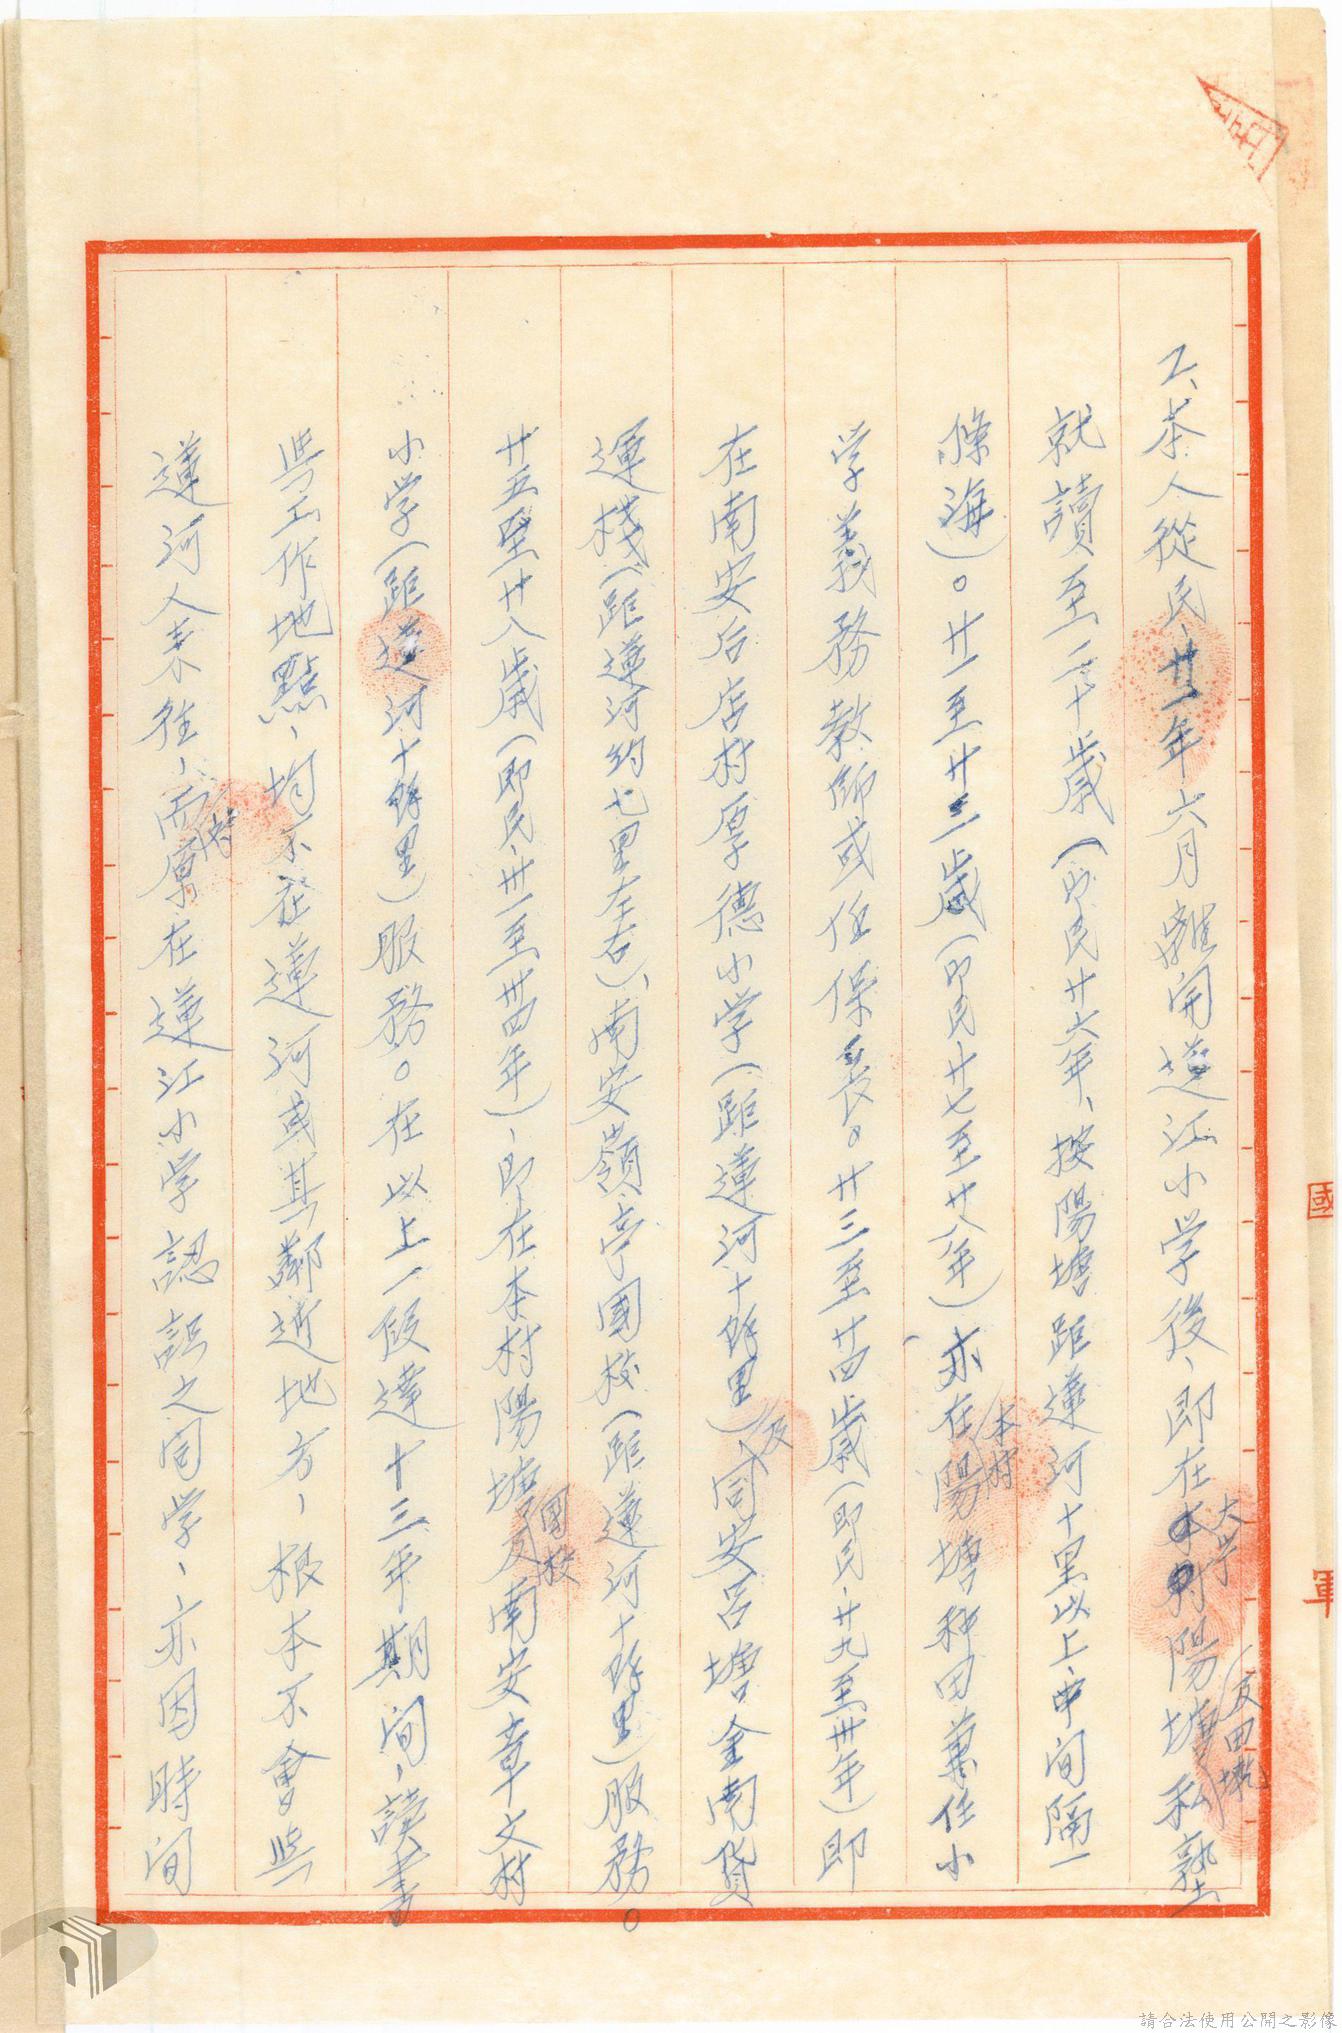 乙、茶人從民、廿一年六月離開蓮江小学後、即在大学陽塘(及田墘私塾
就讀至二十歲(即民廿六年、按陽塘距蓮河十里以上、中间隔一
條海)。廿一至廿三歲(即民廿七至廿八年)亦在(本村)陽塘种田兼任小
学義務教師或任保長。廿三至廿四歲(即民、廿九至卅年)即
在南安后店村厚德小学(距蓮河十餘里)及同安呂塘金南貨
運棧(距蓮河約七里左右)、南安嶺亭國校(距蓮河十餘里)服務。
廿五至廿八歲(即民、卅一至卅四年)、即在本村陽塘國校及南安章文村
小学(距蓮河十餘里)服務。在以上一段達十三年期间、讀書
与工作地點、均不在蓮河或其鄰近地方、根本不會与
蓮河人來往、而對原在蓮江小学認識之同学、亦因時间
國
軍
請合法使用公開之影像